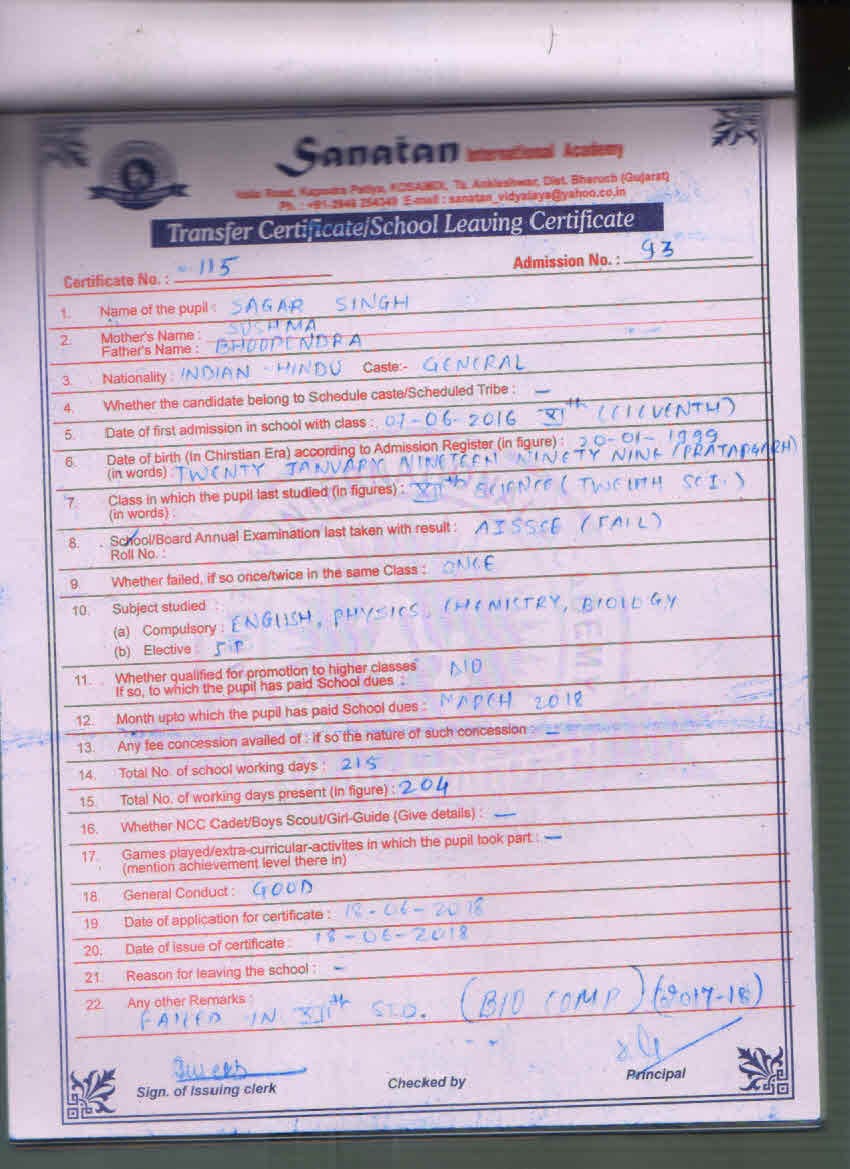 Sanatan International Academy
Valia Road, Kapodra Patiya, KOSAMDI, Ta. Ankleshwar, Dist. Bharuch (Gujarat)
Ph. : E-mail : sanatan_vidyalaya@yahoo.co.in
Transfer Certificate/School Leaving Certificate
Certificate No. : 115 Admission No. : 93
1. Name of the pupil : SAGAR SINGH
2. Mother's Name : SUSHMA
Father's Name : BHOOPENDRA
3. Nationality : INDIAN - HINDU Caste:- GENERAL
4. Whether the candidate belong to Schedule caste/Scheduled Tribe : —
5. Date of first admission in school with class : 07-06-2016 XIth (ELEVENTH)
6. Date of birth (In Chirstian Era) according to Admission Register (in figure) : 20-01-1999
(in words) : TWENTY JANUARY NINETEEN NINETY NINE (PRATAPGARH)
7. Class in which the pupil last studied (in figures) : XIIth SCIENCE (TWELFTH SCI.)
(in words) :
8. School/Board Annual Examination last taken with result : AISSCE (FAIL)
Roll No. :
9. Whether failed, if so once/twice in the same Class : ONCE
10. Subject studied :
(a) Compulsory : ENGLISH, PHYSICS, CHEMISTRY, BIOLOGY
(b) Elective :
11. Whether qualified for promotion to higher classes NO
If so, to which the pupil has paid School dues :
12. Month upto which the pupil has paid School dues : MARCH 2018
13. Any fee concession availed of : if so the nature of such concession : —
14. Total No. of school working days : 215
15. Total No. of working days present (in figure) : 204
16. Whether NCC Cadet/Boys Scout/Girl-Guide (Give details) : —
17. Games played/extra-curricular-activites in which the pupil took part : —
(mention achievement level there in)
18. General Conduct : GOOD
19 Date of application for certificate : 18-06-2018
20. Date of issue of certificate : 18-06-2018
21. Reason for leaving the school : -
22. Any other Remarks :
FAILED IN XIIth STD. (BIO COMP) (2017-18)
Sign. of Issuing clerk Checked by Principal